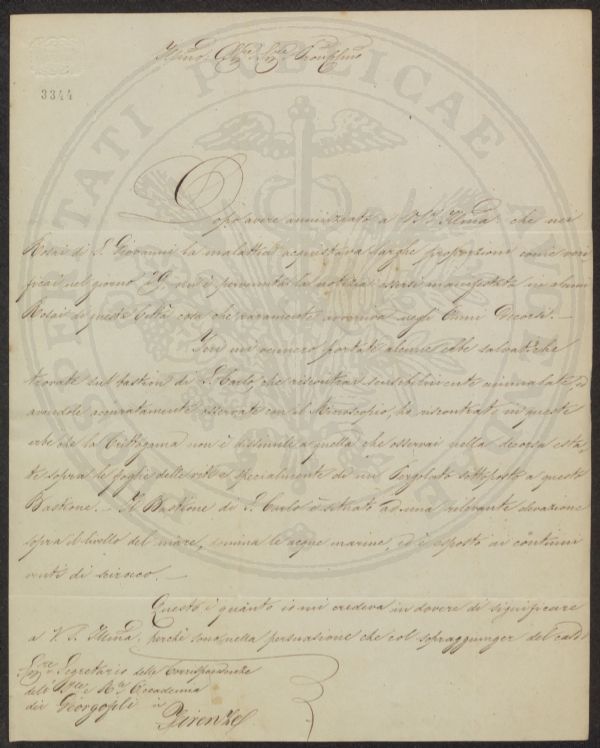 3344
Dopo avere annunziato a V. S. Illma che nei
Rosai di S. Giovanni la malattia acquistava larghe proporzioni come veri
ficai nel giorno 29, mi è pervenuta la notizia essersi manifestata in alcuni
Rosai di questa Città cosa che raramente avveniva negli Anni Decorsi. —
Jeri mi vennero portate alcune erbe salvatiche
trovate sul bastion di S. Carlo, che riscontrai sensibilmente ammalate, ed
avendole accuratamente osservate con il Microscopio, ho riscontrato in queste
erbe che la Crittogama non è dissimile a quella che osservai nella decorsa esta,
te sopra le foglie delle viti e specialmente di un Pergolato sottoposto a questo
Bastione. — Il Bastione di S. Carlo è situato ad una rilevante elevazione
sopra il livello del mare, domina le acque marine, ed è esposto ai continui
venti di scirocco. —
Questo è quanto io mi credeva in dovere di significare
a V. S. Illma perchè sono nella persuasione che col sopraggiunger del cald
Segretario delle Corrispondenze
dell' Accademia
dei Georgofili in
Firenze
PROSPERITATI PUBLICAE AUGENDAE